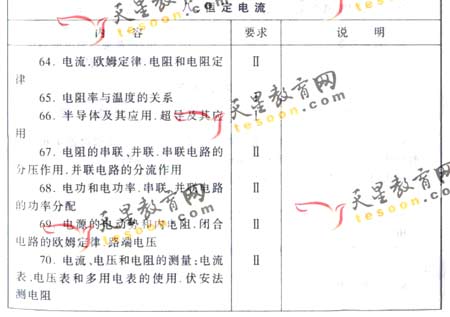 恒定电流
内 容 要求 说 明
64. 电流.欧姆定律.电阻和电阻定 Ⅱ
律
65. 电阻率与温度的关系
66. 半导体及其应用.超导及其应
用
67. 电阻的串联,并联.串联电路的 Ⅱ
分压作用.并联电路的分流作用
68. 电功和电功率.串联,并联电路 Ⅱ
的功率分配
69. 电源的电动势和内电阻.闭合 Ⅱ
电路的欧姆定律.路端电压
70. 电流、电压和电阻的测量;电流 Ⅱ
表、电压表和多用电表的使用.伏安法
测电阻
天星教育网
tesoon.com
天星教育网
tesoon.com
天星教育网
tesoon.com
天星教育网
tesoon.com